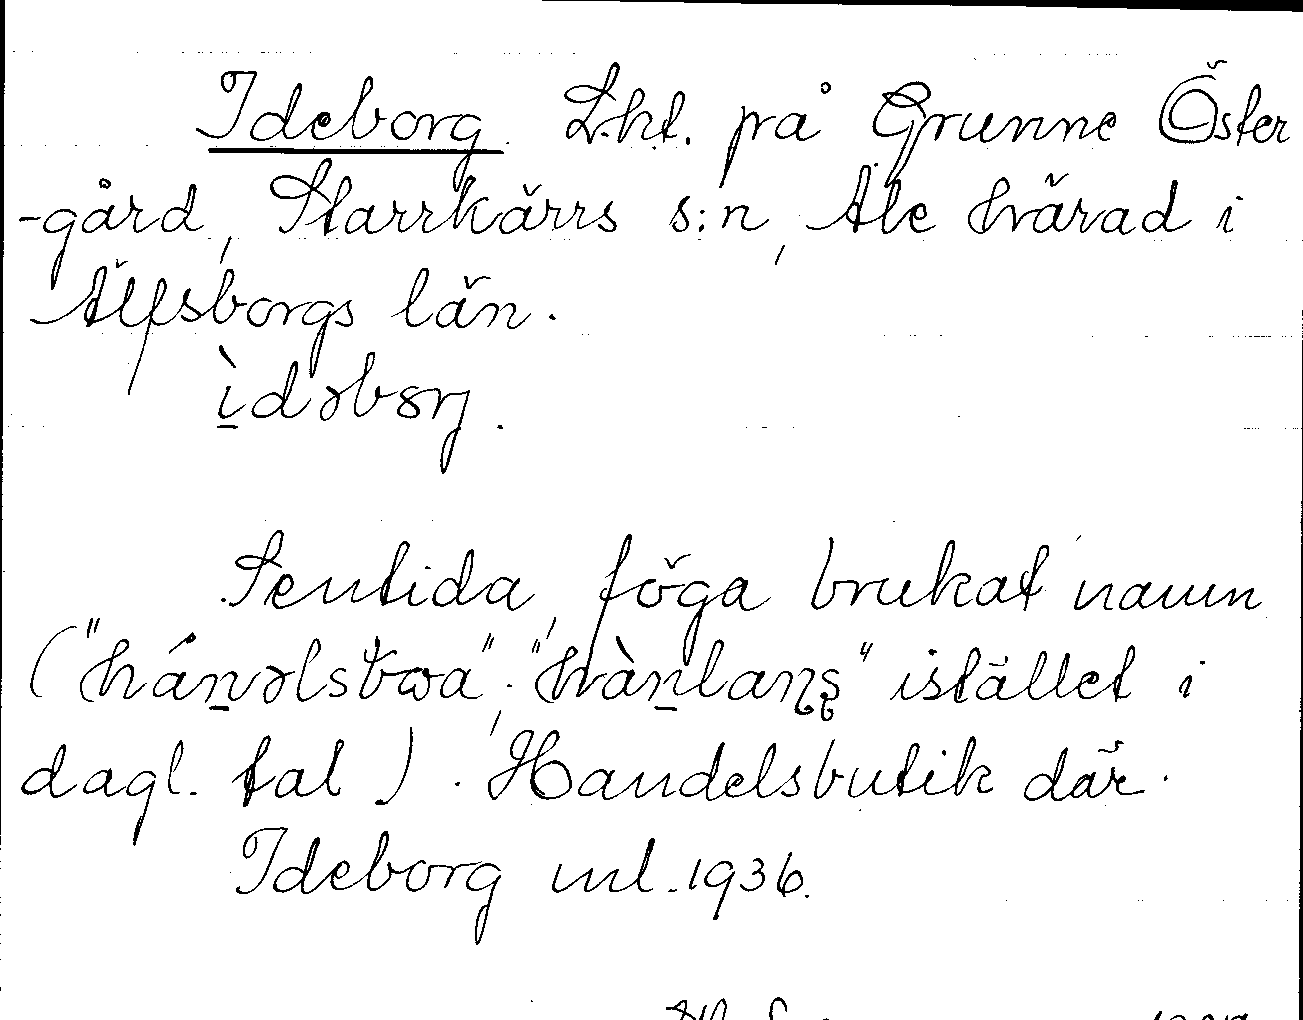 Ideborg Lht. på Grunne Öster
-gård, Starrkärrs s:n, Ale härad i
Älfsborgs län.
ìdəbɔrj.
Sentida, föga brukat namn
("hánəlsbωa", "hànlaɳʂ" istället i
dagl. tal). Handelsbutik där.
Ideborg ml. 1936.